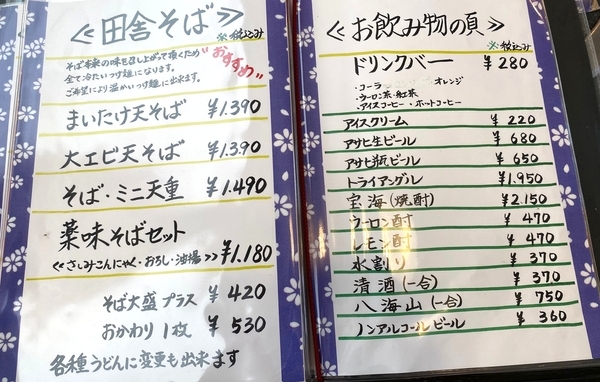 ≪田舎そば≫
※税込み
そば本来の味を召し上がって頂くため
全て冷たいつけ麺になります。
ご希望により温かいつけ麺に出来ます。
"おすすめ"
まいたけ天そば ¥1.390
大エビ天そば ¥1.390
そば・ミニ天重 ¥1.490
薬味そばセット
≪さしみこんにゃく・おろし・油揚≫ ¥1.180
そば大盛プラス ¥420
おかわり1枚 ¥530
各種うどんに変更も出来ます
≪お飲み物の頁≫
※税込み
ドリンクバー ¥280
・コーラ オレンジ
・ウーロン茶・紅茶
・アイスコーヒー・ホットコーヒー
アイスクリーム ¥220
アサヒ生ビール ¥680
アサヒ瓶ビール ¥650
トライアングル ¥1.950
宝海(焼酎) ¥2.150
ウーロン酎 ¥470
レモン酎 ¥470
水割り ¥370
清酒(一合) ¥370
八海山(一合) ¥750
ノンアルコールビール ¥360